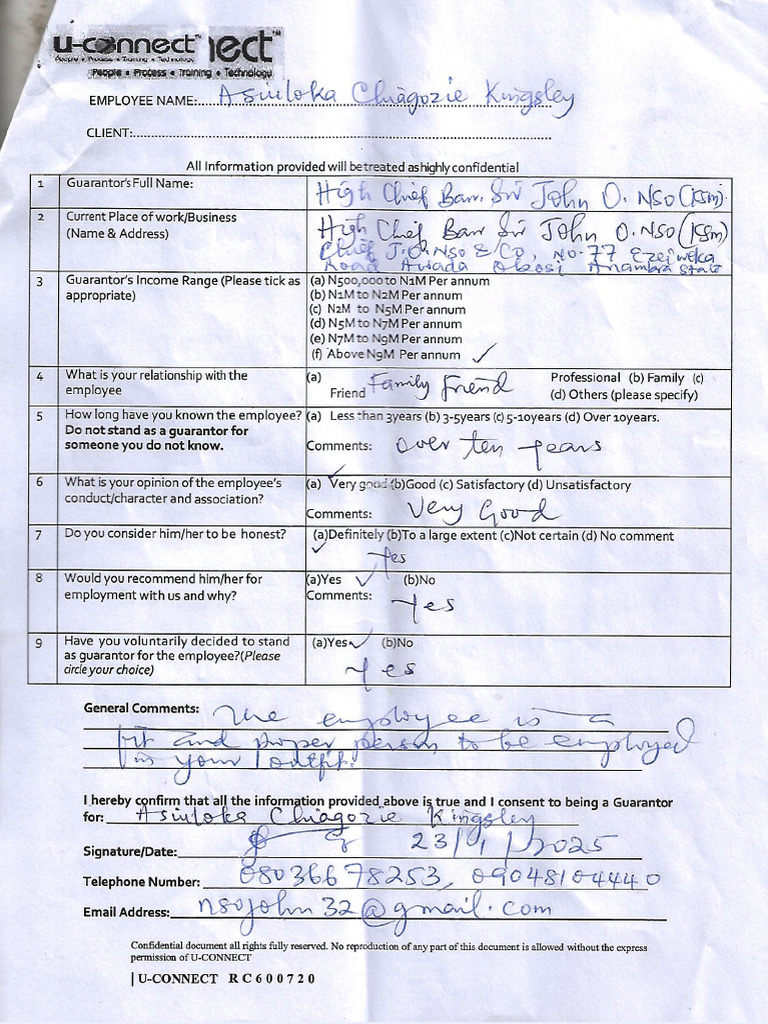 u-connect™ nect™
People • Process • Training • Technology
People • Process • Training • Technology
EMPLOYEE NAME:.... Asiuloka Chiagozie Kingsley
CLIENT:....
All Information provided will be treated as highly confidential
1 Guarantor's Full Name: High Chief Barr. Sir John O. NSO (KSM)
2 Current Place of work/Business (Name & Address) High Chief Barr Sir John O. NSO (KSM)
Chief J.O. NSO & Co, No. 77 Ezeiweka
Road Awada Obosi Anambra State
3 Guarantor's Income Range (Please tick as appropriate) (a) N500,000 to N1M Per annum
(b) N1M to N2M Per annum
(c) N2M to N5M Per annum
(d) N5M to N7M Per annum
(e) N7M to N9M Per annum
(f) Above N9M Per annum ✓
4 What is your relationship with the employee (a) Friend Family friend Professional (b) Family (c)
(d) Others (please specify)
5 How long have you known the employee? (a) Less than 3years (b) 3-5years (c) 5-10years (d) Over 10years.
Do not stand as a guarantor for someone you do not know. Comments: Over ten years
6 What is your opinion of the employee's conduct/character and association? (a) Very good (b)Good (c) Satisfactory (d) Unsatisfactory
Comments: Very Good
7 Do you consider him/her to be honest? (a)Definitely (b)To a large extent (c)Not certain (d) No comment
✓ Yes
8 Would you recommend him/her for employment with us and why? (a)Yes ✓ (b)No
Comments: Yes
9 Have you voluntarily decided to stand as guarantor for the employee?(Please circle your choice) (a)Yes ✓ (b)No
Yes
General Comments: The employee is a
fit and proper person to be employed
in your outfit.
I hereby confirm that all the information provided above is true and I consent to being a Guarantor
for: Asiuloka Chiagozie Kingsley
Signature/Date: 23/1/2025
Telephone Number: 08036678253, 09048104440
Email Address: nsojohn32@gmail.com
Confidential document all rights fully reserved. No reproduction of any part of this document is allowed without the express
permission of U-CONNECT
| U-CONNECT RC600720